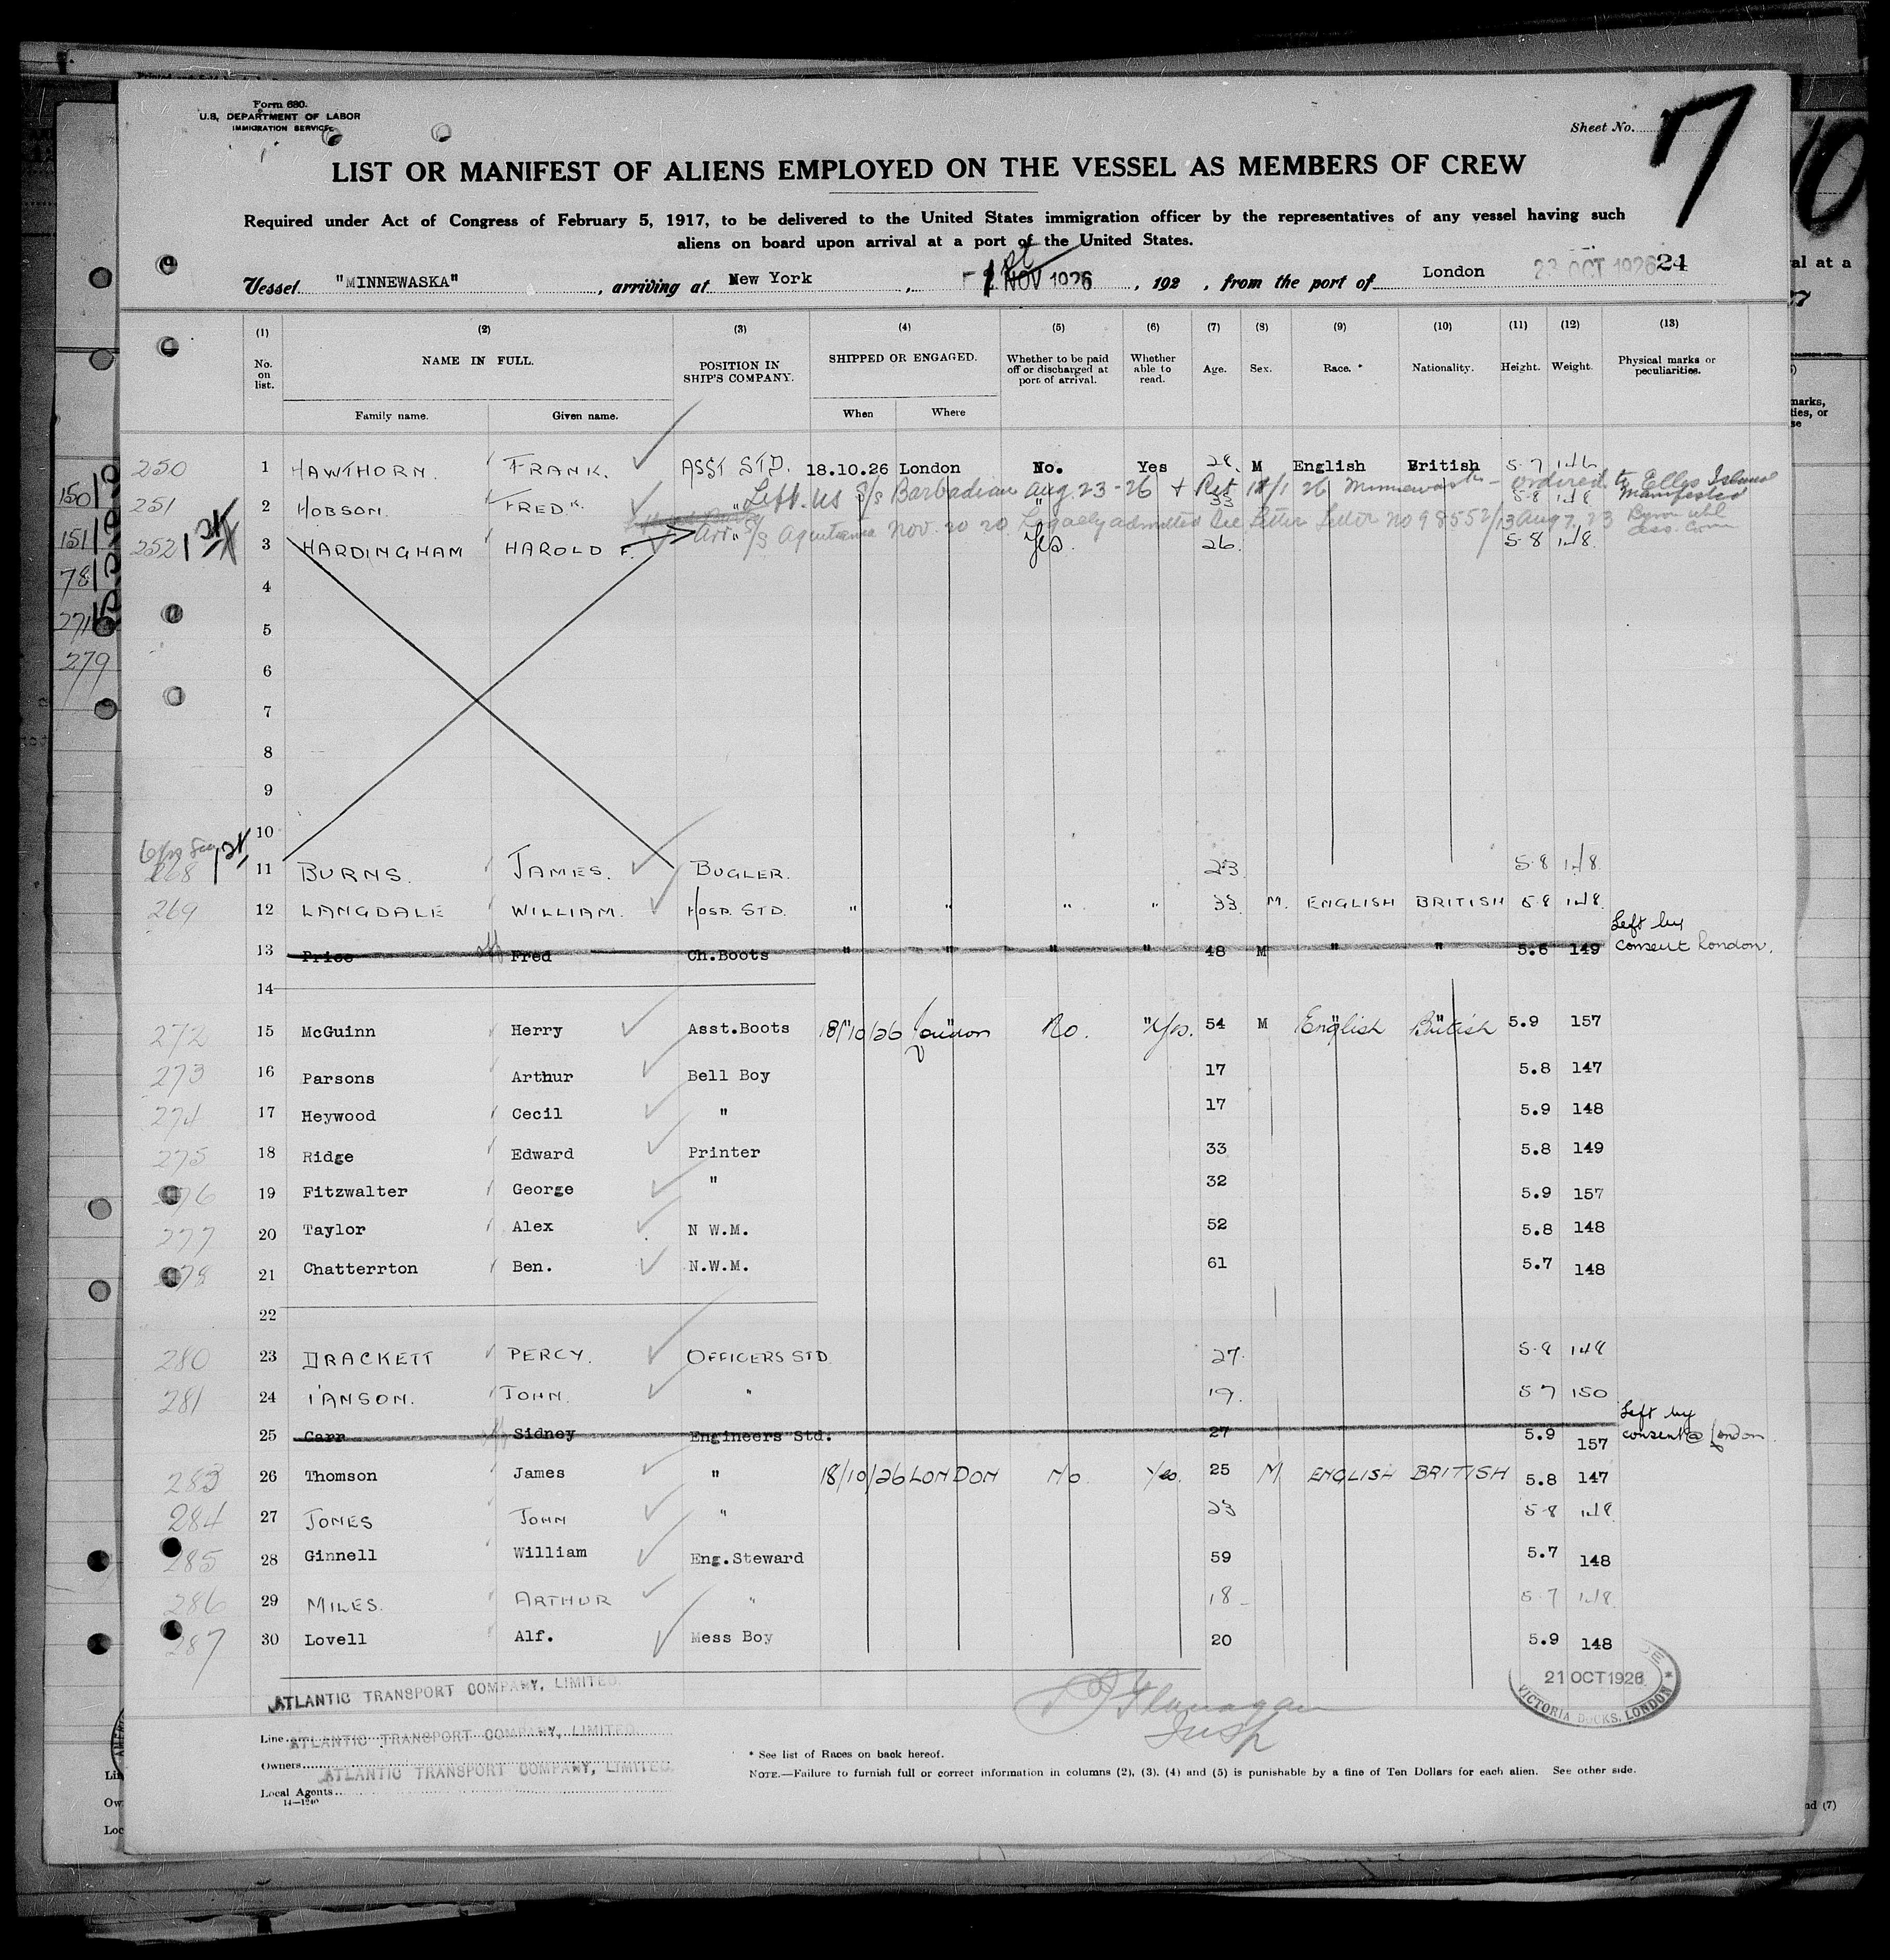 Form 680.
U.S. DEPARTMENT OF LABOR
IMMIGRATION SERVICE
Sheet No.
7
10
LIST OR MANIFEST OF ALIENS EMPLOYED ON THE VESSEL AS MEMBERS OF CREW
Required under Act of Congress of February 5, 1917, to be delivered to the United States immigration officer by the representatives of any vessel having such
aliens on board upon arrival at a port of the United States.
Vessel "MINNEWASKA", arriving at New York, 1st NOV 1926, 192 , from the port of London 23 OCT 1926 24
(1) (2) (3) (4) (5) (6) (7) (8) (9) (10) (11) (12) (13)
No. on list. NAME IN FULL. POSITION IN SHIP'S COMPANY. SHIPPED OR ENGAGED. Whether to be paid off or discharged at port of arrival. Whether able to read. Age. Sex. Race. * Nationality. Height. Weight. Physical marks or peculiarities.
Family name. Given name. When Where
250 1 HAWTHORN. FRANK. ASST STD. 18.10.26 London No. Yes 28. M English British 5.7 146
Left. US S/s Barbadian Aug. 23-26 + Ret 11/1 26 Minnewaska - ordered to Ellis Island
Manifested
251 2 HOBSON. FREDK. " " 33 5-8 148
Arr S/s Aquitania Nov. 20 20 Legally admitted See Letter No 98552/13 Aug 7, 23 Byron Uhl
Ass. Com
252 1st 3 HARDINGHAM HAROLD F. " Yes. 26. 5-8 148.
4
5
6
7
8
9
10
268 1st 11 BURNS. JAMES. BUGLER. 23. 5-8 148.
269 12 LANGDALE WILLIAM. HOSP. STD. " " " " 33. M. ENGLISH BRITISH 5-8 148.
13 Price Fred Ch.Boots " " " " 48 M " " 5.6 149 Left by
consent London.
14
272 15 McGuinn Herry Asst.Boots 18/10/26 London No. Yes. 54 M English British 5.9 157
273 16 Parsons Arthur Bell Boy 17 5.8 147
274 17 Heywood Cecil " 17 5.9 148
275 18 Ridge Edward Printer 33 5.8 149
276 19 Fitzwalter George " 32 5.9 157
277 20 Taylor Alex N W.M. 52 5.8 148
278 21 Chatterrton Ben. N.W.M. 61 5.7 148
22
280 23 BRACKETT PERCY. OFFICERS STD. 27. 5-8 148
281 24 IANSON. JOHN. " 19. 5 7 150
25 Carr Sidney Engineers Std. 27 5.9 157 Left by
consent @ London.
283 26 Thomson James " 18/10/26 LONDON No Yes. 25 M ENGLISH BRITISH 5.8 147
284 27 JONES JOHN " 23 5-8 148
285 28 Ginnell William Eng.Steward 59 5.7 148
286 29 MILES. ARTHUR " 18 - 5-7 148.
287 30 Lovell Alf. Mess Boy 20 5.9 148
21 OCT 1926
VICTORIA DOCKS, LONDON *
ATLANTIC TRANSPORT COMPANY, LIMITED.
Flanagan
Insp
Line ATLANTIC TRANSPORT COMPANY, LIMITED.
Owners ATLANTIC TRANSPORT COMPANY, LIMITED.
Local Agents
14—1240
* See list of Races on back hereof.
NOTE.—Failure to furnish full or correct information in columns (2), (3), (4) and (5) is punishable by a fine of Ten Dollars for each alien. See other side.
150
151
78
271
279